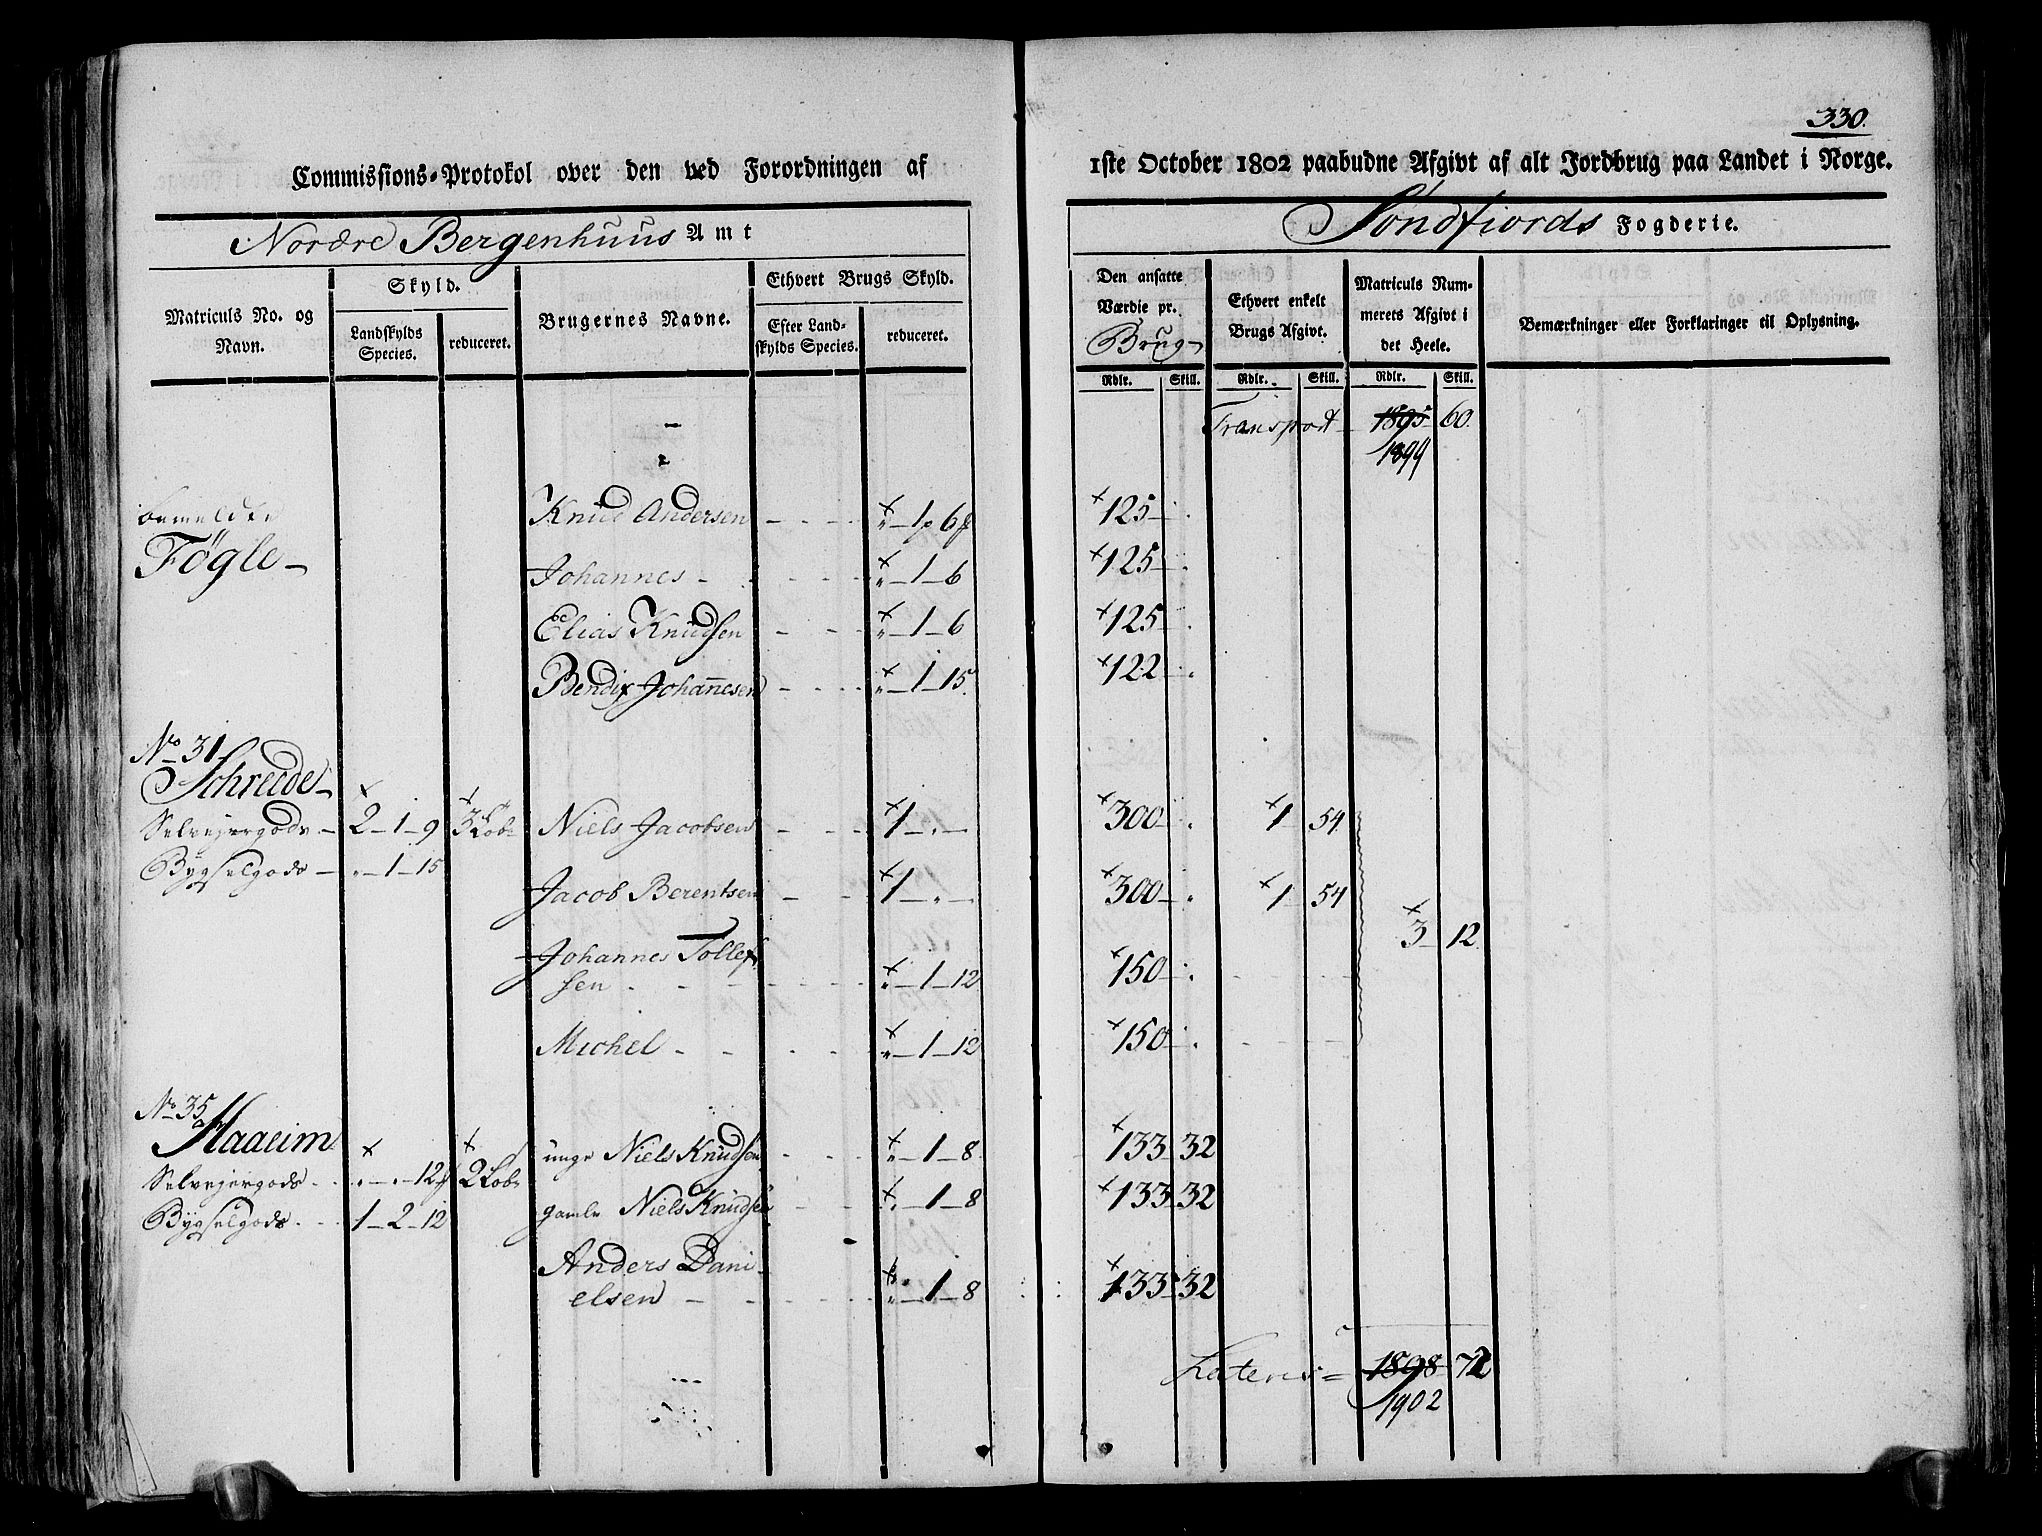 330.
Commissions-Protokol over den ved Forordningen af
1ste October 1802 paabudne Afgivt af alt Jordbrug paa Landet i Norge.
Nordre Bergenhuus Amt
Søndfiords Fogderie.
Matriculs No. og Navn.
Skyld.
Landskylds Species.
reduceret.
Brugernes Navne.
Ethvert Brugs Skyld.
Efter Landskylds Species.
reduceret.
Den ansatte Værdie pr. Brug
Ethvert enkelt Brugs Afgivt.
Matriculs Nummerets Afgivt i det Heele.
Bemærkninger eller Forklaringer til Oplysning.
Rdlr. Skill. Rdlr. Skill. Rdlr. Skill.
Transport 1895 60.
1899
bemeldte Knud Andersen " 1p 6 125
Føgle Johannes " 1 6 125
Elias Knudsen " 1 6 125
Bendix Johannesen " 1 15. 122
No 31
Schreede
Selvejergods 2 1 9 3 Løb Niels Jacobsen 1 " 300 1 54
Bygselgods " 1 15
Jacob Berentsen 1 " 300 1 54
3 12
Johannes Tollef
sen " 1 12 150
Michel " 1 12 150
No 35
Haaeim
unge Niels Knudsen " 1 8 133 32
Selvejergods " " 12 2 Løb
gamle Niels Knudsen " 1 8 133 32
Bygselgods 1 2 12
Anders Dani
elsen " 1 8 133 32
Lateris 1898 72
1902